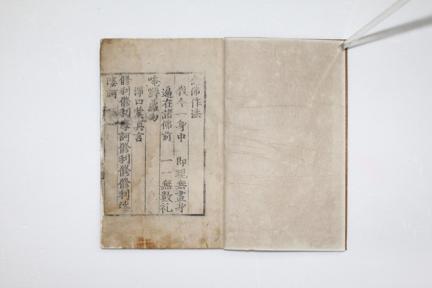 佛作法
我今一身中 即現無盡身
遍在諸佛前 一一無數礼
唵嚩囉勿
淨口業真言
修利修利摩訶修利修修利
訶